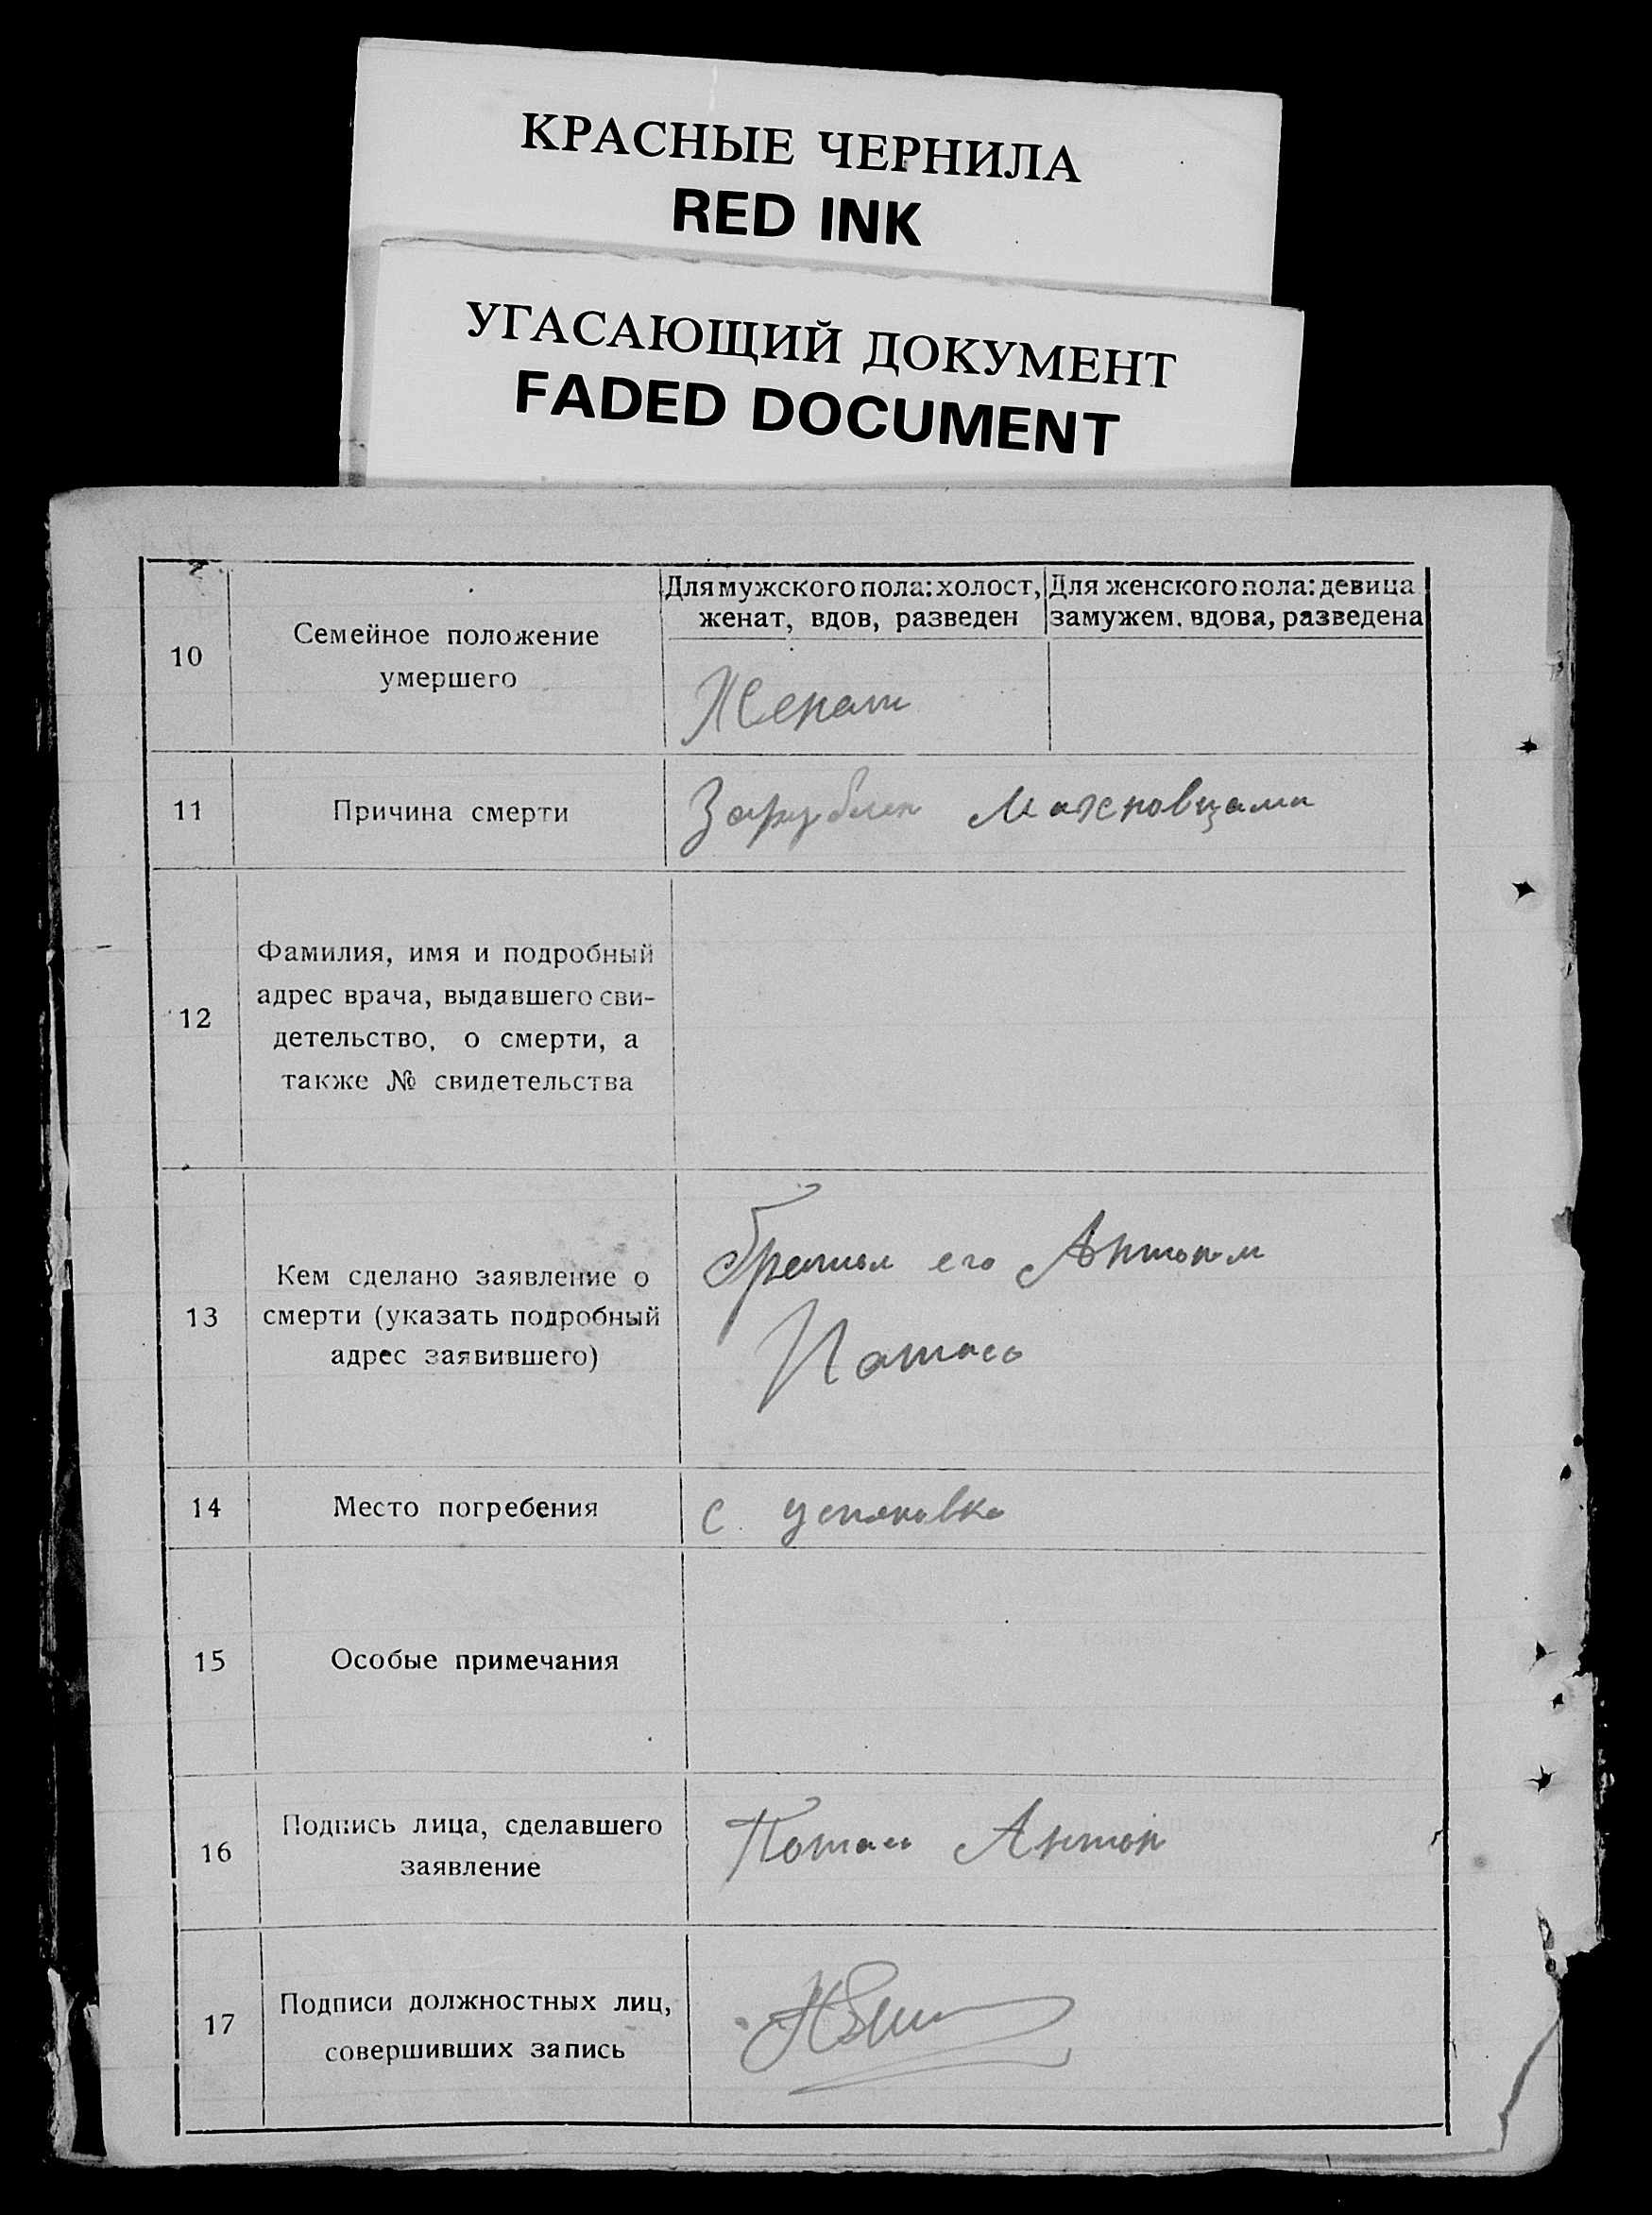 КРАСНЫЕ ЧЕРНИЛА
RED INK
УГАСАЮЩИЙ ДОКУМЕНТ
FADED DOCUMENT
Для мужского пола: холост, Для женского пола: девица
женат, вдов, разведен замужем. вдова, разведена
10 Семейное положение
умершего
Женат
11 Причина смерти Зарублен Махновцами
12 Фамилия, имя и подробный
адрес врача, выдавшего сви-
детельство, о смерти, а
также № свидетельства
13 Кем сделано заявление о
смерти (указать подробный
адрес заявившего)
Братом его Антоном
14 Место погребения с.
15 Особые примечания
16 Подпись лица, сделавшего
заявление
Антон
17 Подписи должностных лиц,
совершивших запись